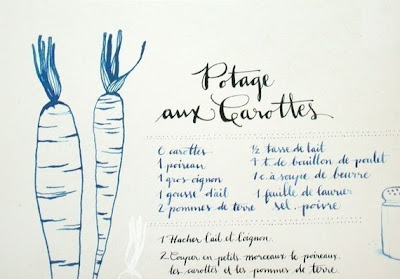 Potage
aux Carottes
6 carottes
1 poireau
1 gros oignon
1 gousse d'ail
2 pommes de terre
½ tasse de lait
4 t. de bouillon de poulet
1 c. à soupe de beurre
1 feuille de laurier
sel. poivre
1 Hacher l'ail et l'oignon.
2 Couper en petits morceaux le poireaux,
les carottes et les pommes de terre.